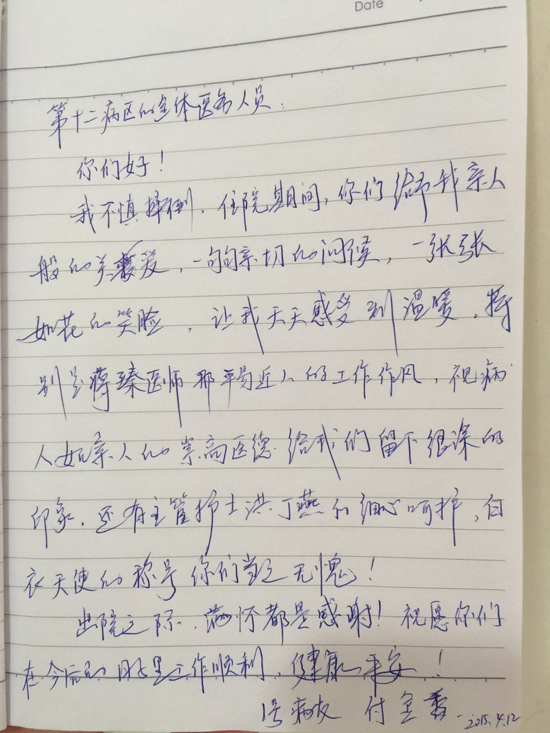 Date
第十二病区的全体医务人员:
你们好!
我不慎摔倒.住院期间,你们给予我亲人
般的关爱,一句句亲切的问候,一张张
如花的笑脸,让我天天感受到温暖.特
别是蒋臻医师那平易近人的工作作风,视病
人如亲人的崇高医德给我们留下很深的
印象.还有主管护士洪丁燕的细心呵护,白
衣天使的称号你们当之无愧!
出院之际.满怀都是感谢!祝愿你们
在今后的日子里工作顺利,健康平安!
1号病友 付金香
2015.4.12